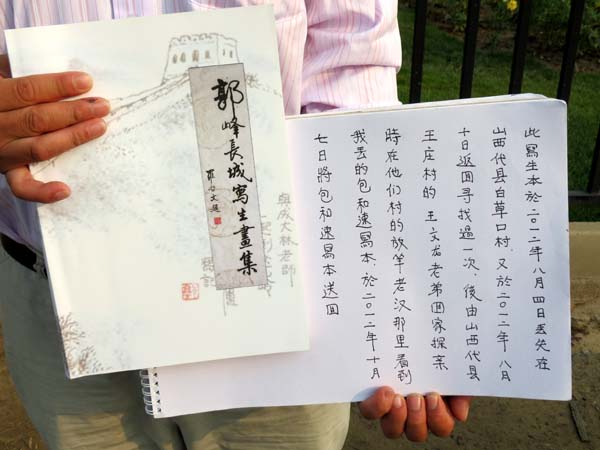 郭峰長城寫生畫集
與成大林老師
此寫生本於二〇一二年八月四日丢失在
山西代县白草口村.又於二〇一二年八月
十日返回寻找過一次.後由山西代县
王庄村的王文龙老弟回家探亲
時在他们村的放羊老汉那里看到
我丢的包和速寫本.於二〇一二年十月
七日將包和速寫本送回